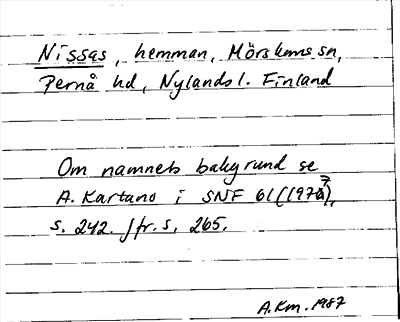 Nissas, hemman, Mörskoms sn,
Pernå hd, Nylands l. Finland
Om namnets bakgrund se
A. Kartano i SNF 61 (1977),
s. 242. Jfr. s. 265.
A.Km. 1987